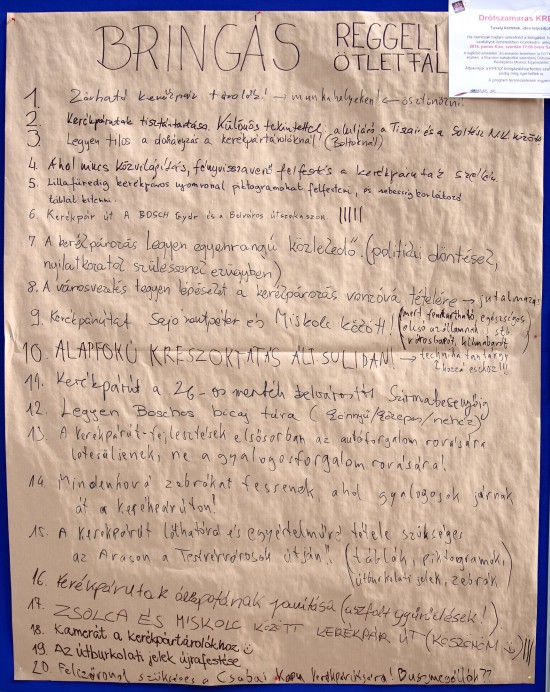 BRINGÁS REGGELI
ÖTLETFAL
Drótszamaras KRE
1. Zárható kerékpár tárolók! → munkahelyeken! ← ösztönözni!
2. Kerékpárutak tisztántartása. Különös tekintettel aluljáró a Tiszai és a Soltész NK között
3. Legyen tilos a dohányzás a kerékpártárolóknál! (Boltoknál)
4. Ahol nincs közvilágítás, fényvisszaverő felfestés a kerékpárutaz szélén.
5. Lillafüredig kerékpáros nyomvonal piktogramokat felfesteni, és sebességkorlátozó
táblát kitenni.
6. Kerékpár út A BOSCH Gyár és a Belváros útszakaszon |||||
7. A kerékpározás legyen egyenrangú közlekedő. (politikai döntések,
nyilatkozatok szülessenek ezügyben)
8. A városvezetés tegyen lépéseket a kerékpározás vonzóvá tételére → jutalmazás
9. Kerékpárútat Sajó Miskolc között! (mert fenntartható, egészséges,
olcsó az államnak! stb
városbarát, klímabarát
10. ALAPFOKÚ KRESZOKTATÁS ÁLT. SULIDAN! → technika tantárgy
hozzá eszköz!!!
11. Kerékpárút a 26-os mentén belvárostól Szirmabesenyőig
12. Legyen Boschos bicaj túra (könnyű/közepes/nehéz)
13. A kerékpárút-fejlesztések elsősorban az autóforgalom rovására
létesüljenek, ne a gyalogosforgalom rovására!
14. Mindenhová zebrákat fessenek, ahol gyalogosok járnak
át a kerékpárúton!
15. A kerékpárút láthatóvá és egyértelművé tétele szükséges
az Avason a Testvérvárosok útján!! (táblák, piktogramok,
útburkolati jelek, zebrák
16. Kerékpárutak állapotának javítása (aszfalt gyűrődések!)
17. ZSOLCA ÉS MISKOLC KÖZÖTT KERÉKPÁR ÚT (KÖSZÖNÖM :)) |||
18. Kamerát a kerékpártárolókhoz
19. Az útburkolati jelek újrafestése
20. szükséges a Csabai Kapu kerékpárútjára! Buszmegállók??